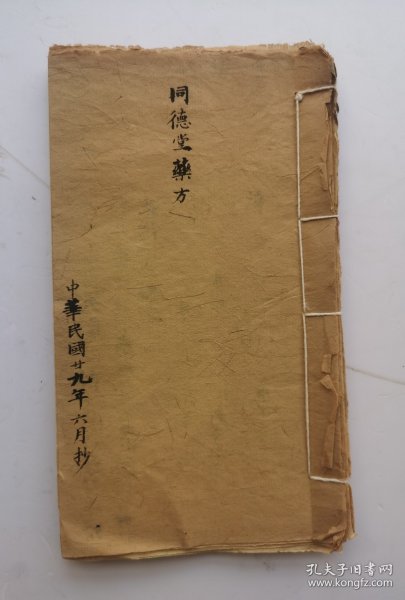 同德堂藥方
中華民國廿九年六月抄
孔夫子旧书网
www.kongfz.com